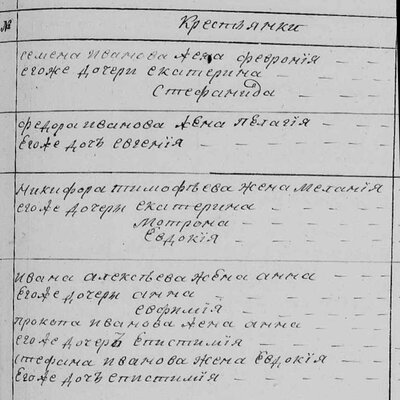 № Крестьянки
Семена Иванова жена Феврония
Егоже дочери Екатерина
Стефанида
Федора Иванова жена Пелагія
Егоже дочь Евгенія
Никифора Тимофѣева жена Меланія
егоже дочери Екатерина
Мотрона
Евдокія
Ивана Алексѣева жена Анна
Егоже дочери Анна
Евфимія
Прокопа Иванова жена Анна
Егоже дочерь Епистимія
Стефана Иванова жена Евдокія
Егоже дочь Епистимія